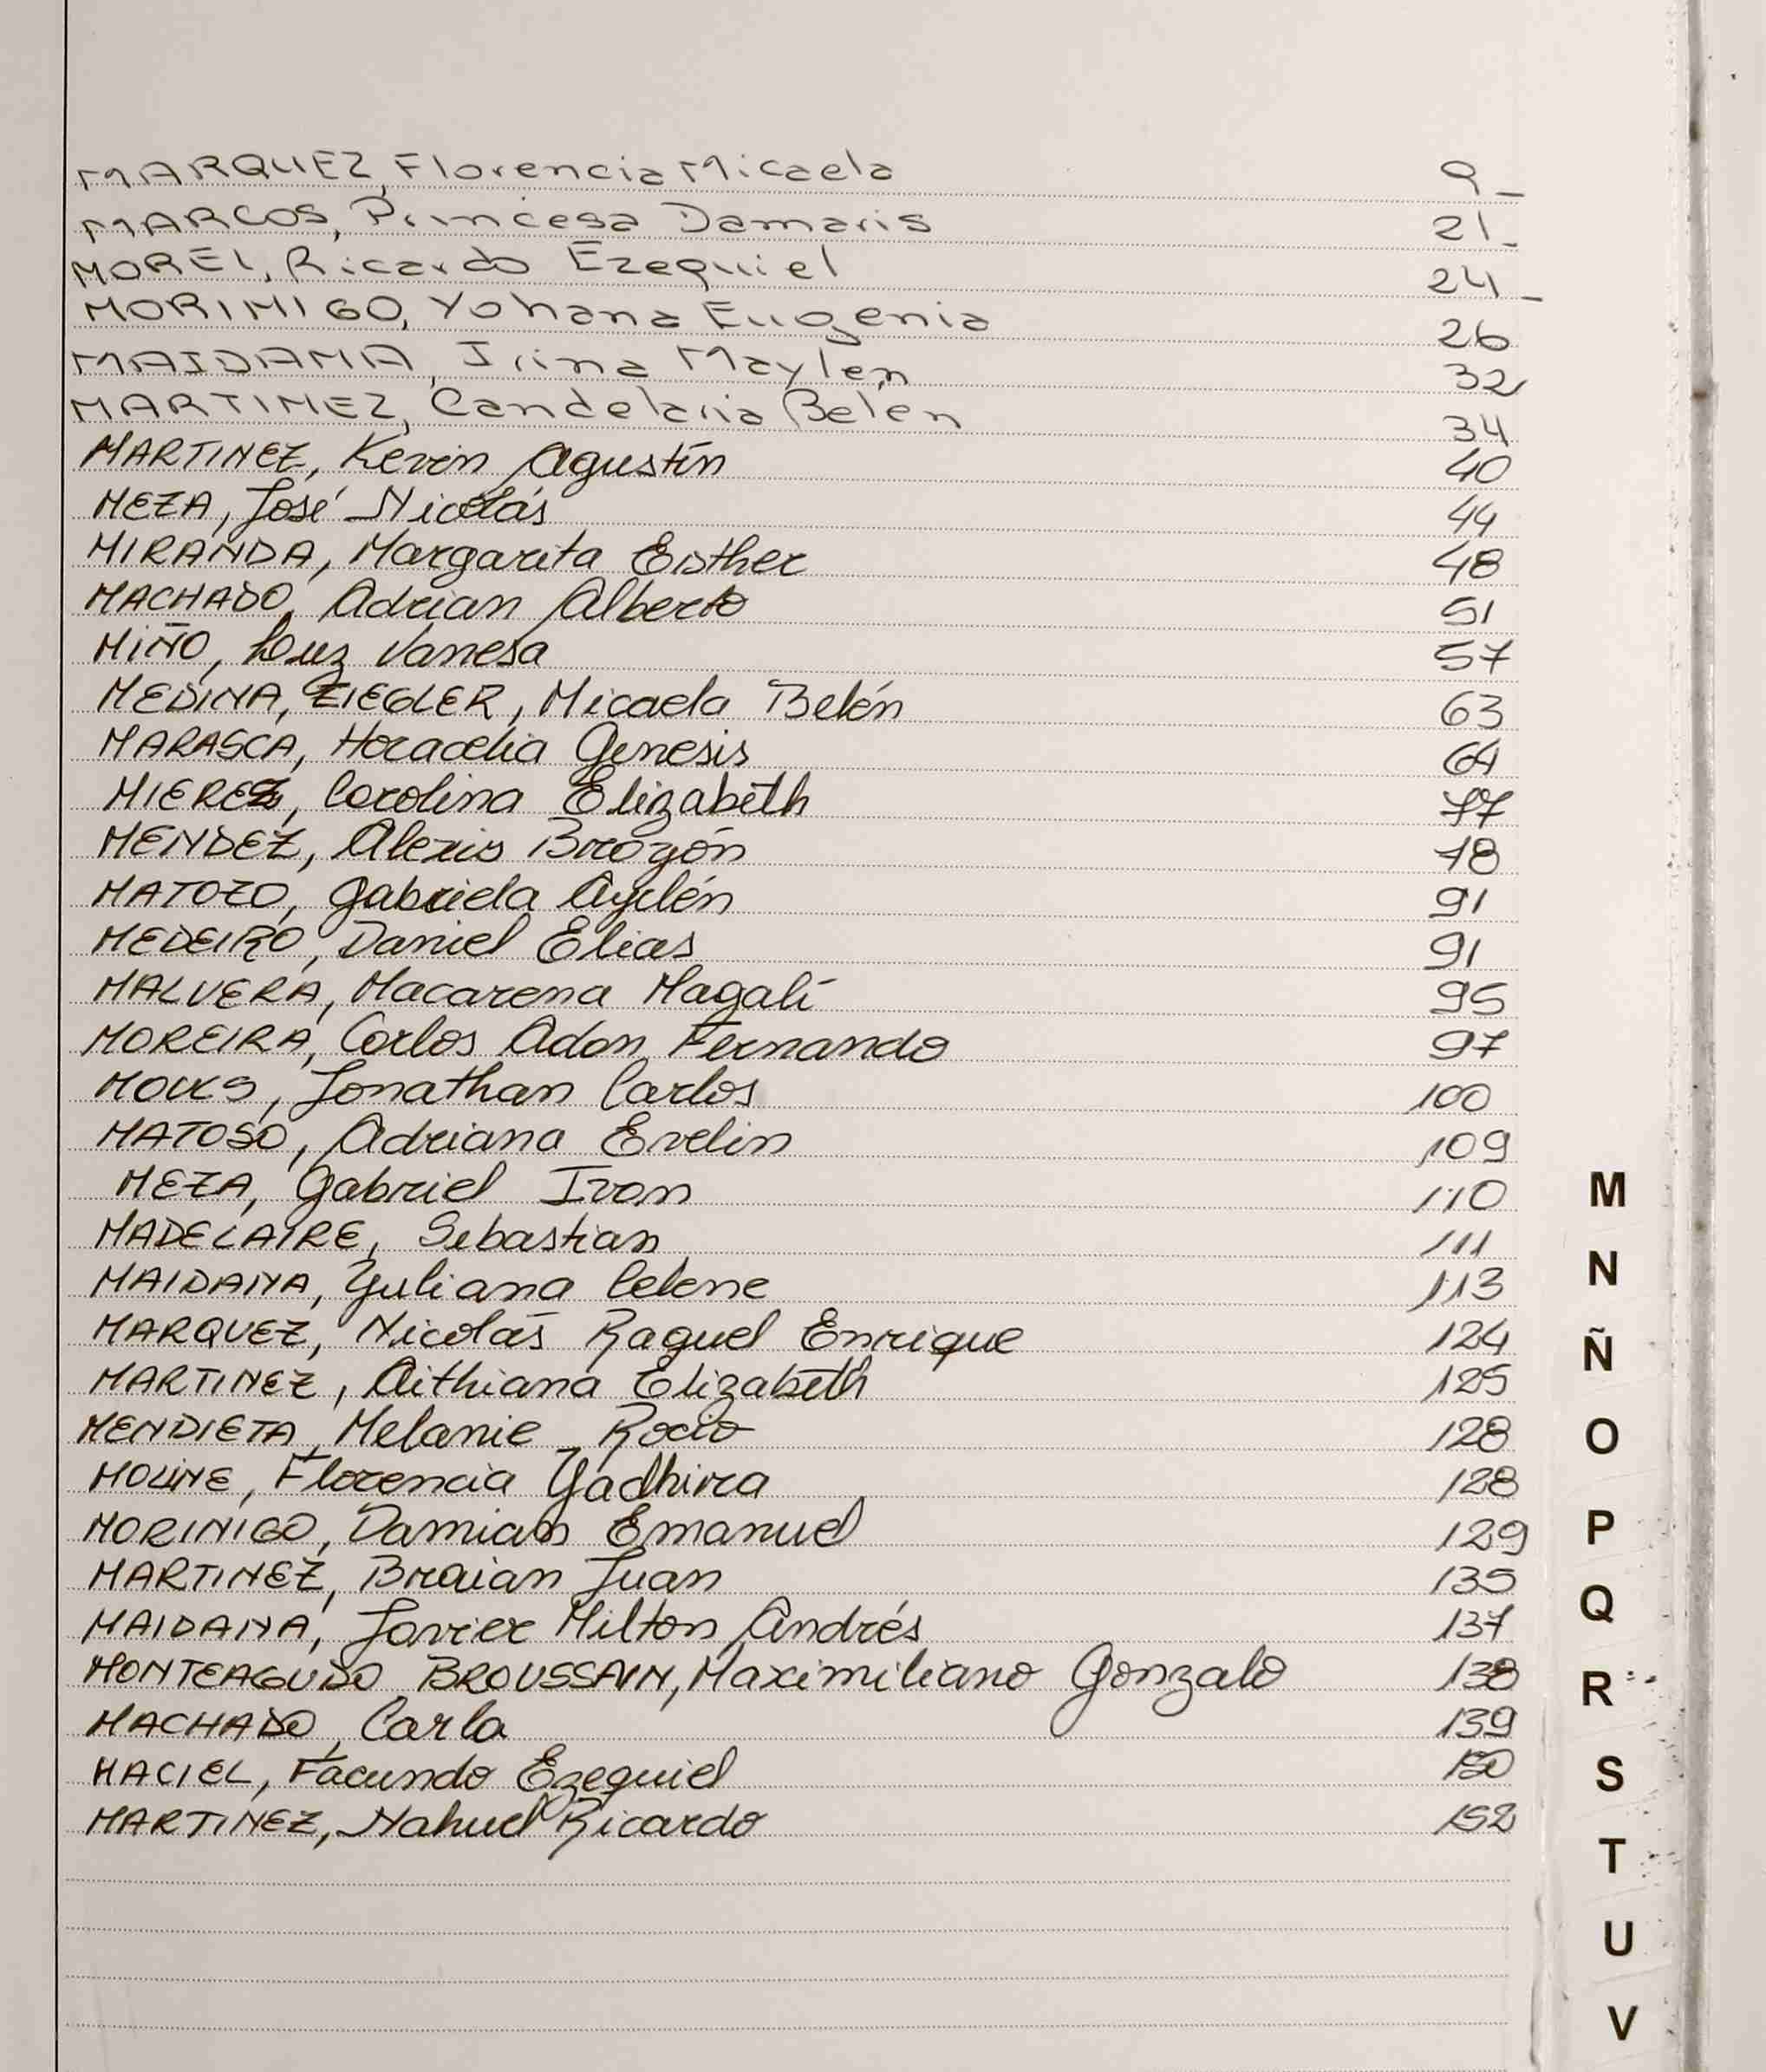 MARQUEZ, Florencia Micaela 9_
MARCOS, Princesa Damaris 21_
MOREL, Ricardo Ezequiel 24_
MORINIGO, Yohana Eugenia 26
MAIDANA, Irina Maylen 32
MARTINEZ, Candelaria Belén 34
MARTINEZ, Kevin Agustín 40
MEZA, José Nicolás 44
MIRANDA, Margarita Esther 48
MACHADO, Adrian Alberto 51
MIÑO, Luz Vanesa 57
MEDINA, ZIEGLER, Micaela Belén 63
MARASCA, Horacelia Genesis 64
MIEREZ, Carolina Elizabeth 77
MENDEZ, Alexis 78
MATOZO, Gabriela Aylén 91
MEDEIRO, Daniel Elias 91
MALVERA, Macarena Magalí 95
MOREIRA, Carlos Adan Fernando 97
Jonathan Carlos 100
MATOSO, Adriana Evelin 109
MEZA, Gabriel Ivan 110
MADELAIRE, Sebastian 111
MAIDANA, Yuliana Celene 113
MARQUEZ, Nicolás Raguel Enrique 124
MARTINEZ, Aithiana Elizabeth 125
MENDIETA, Melanie Rocio 128
MOLINE, Florencia Yadhira 128
MORINIGO, Damian Emanuel 129
MARTINEZ, Braian Juan 135
MAIDANA, Javier Milton Andrés 137
MONTEAGUDO BROUSSAIN, Maximiliano Gonzalo 138
MACHADO, Carla 139
MACIEL, Facundo Ezequiel 150
MARTINEZ, Nahuel Ricardo 152
M
N
Ñ
O
P
Q
R
S
T
U
V